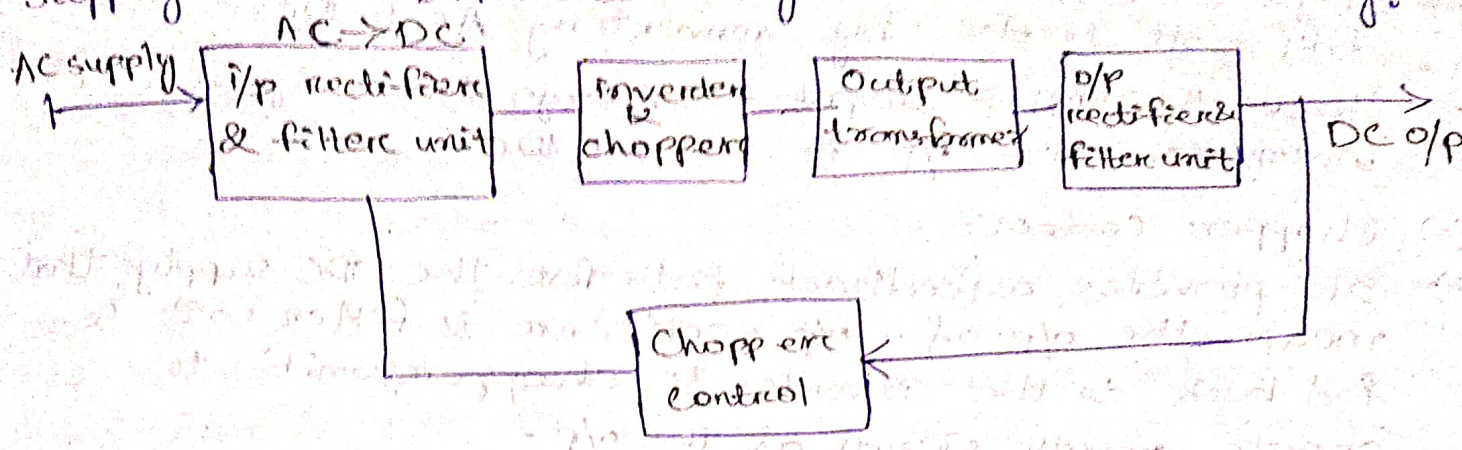 AC → DC
AC supply
i/p rectifiere
& filtere unit
inverter
chopper
Output
transformer
o/p
rectifier &
filter unit
DC o/p
Choppere
control